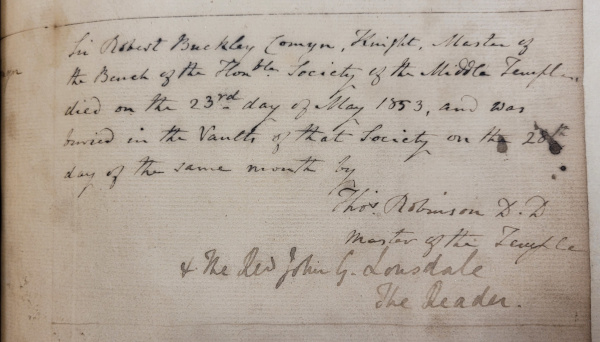 Sir Robert Buckley Comyn, Knight, Master of
the Bench of the Honble Society of the Middle Temple
died on the 23rd day of May 1853, and was
buried in the Vaults of that Society on the 28th
day of the same month by
Thos. Robinson D.D
Master of the Temple
& The Revd John G. Lonsdale
The Reader.